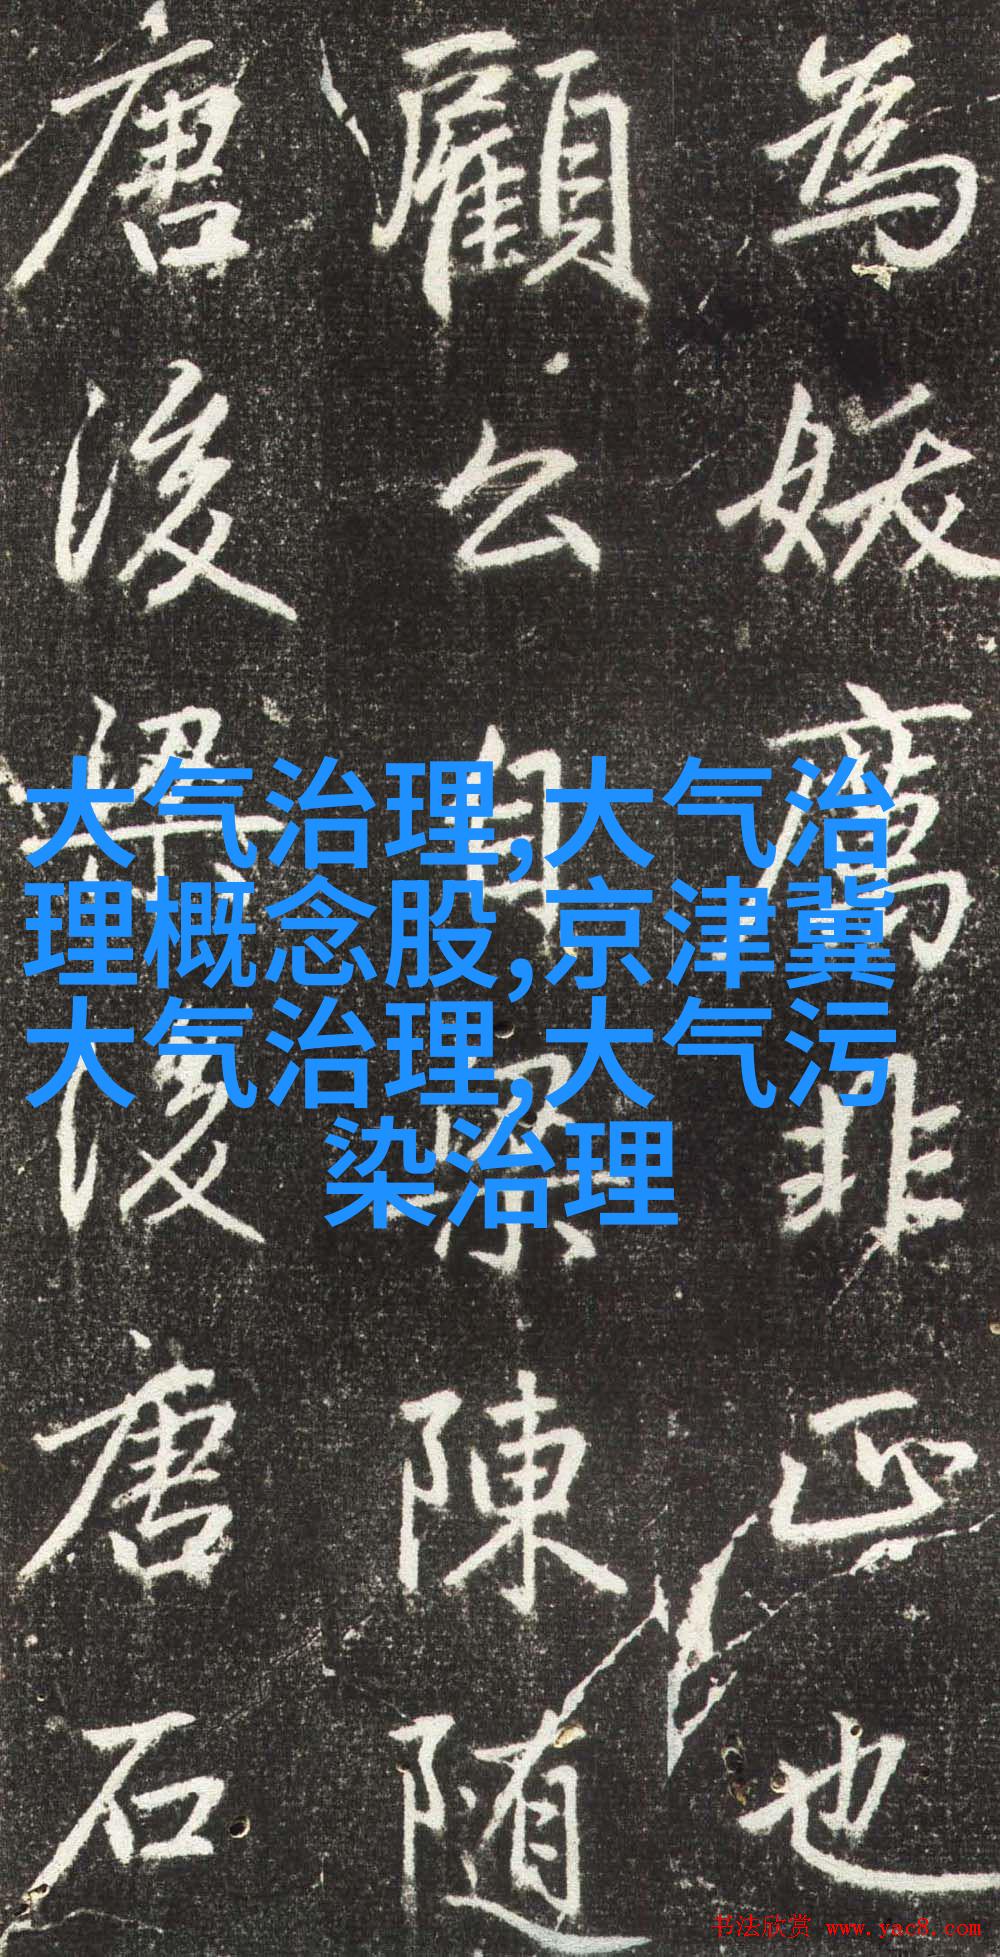 為妖非正也
顧公自陳随
唐後梁後唐石
大气治理,大气治
理概念股,京津冀
大气治理,大气污
染治理
书法欣赏 www.yac8.com